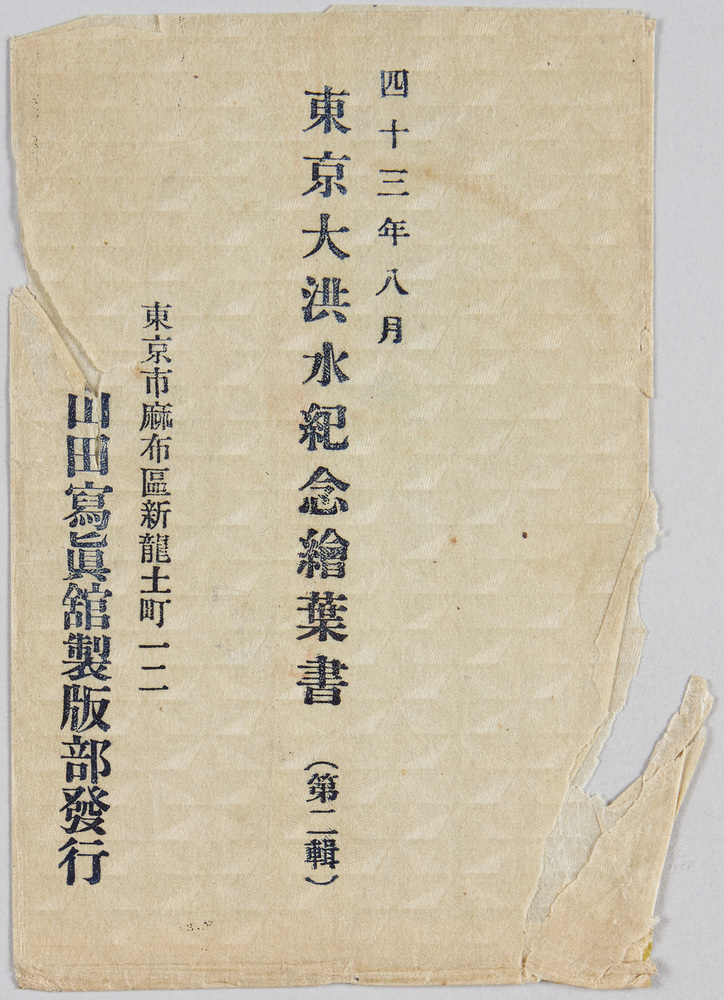 四十三年八月
東京大洪水紀念繪葉書（第二輯）
東京市麻布區新龍土町一二
山田寫眞舘製版部發行